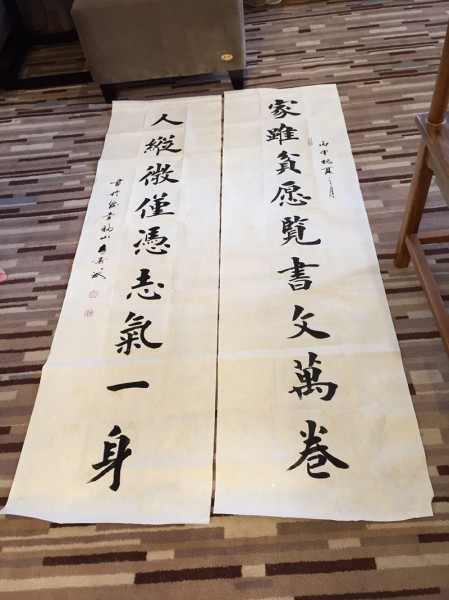 家雖貧愿覽書文萬卷
人縱微僅憑志氣一身